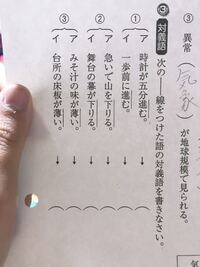 ③ 異常(気象)が地球規模で見られる。
3 対義語 次の――線をつけた語の対義語を書きなさい。
① ア 時計が五分進む。 → ( )
イ 一歩前に進む。 → ( )
② ア 急いで山を下りる。 → ( )
イ 舞台の幕が下りる。 → ( )
③ ア みそ汁の味が薄い。 → ( )
イ 台所の床板が薄い。 → ( )